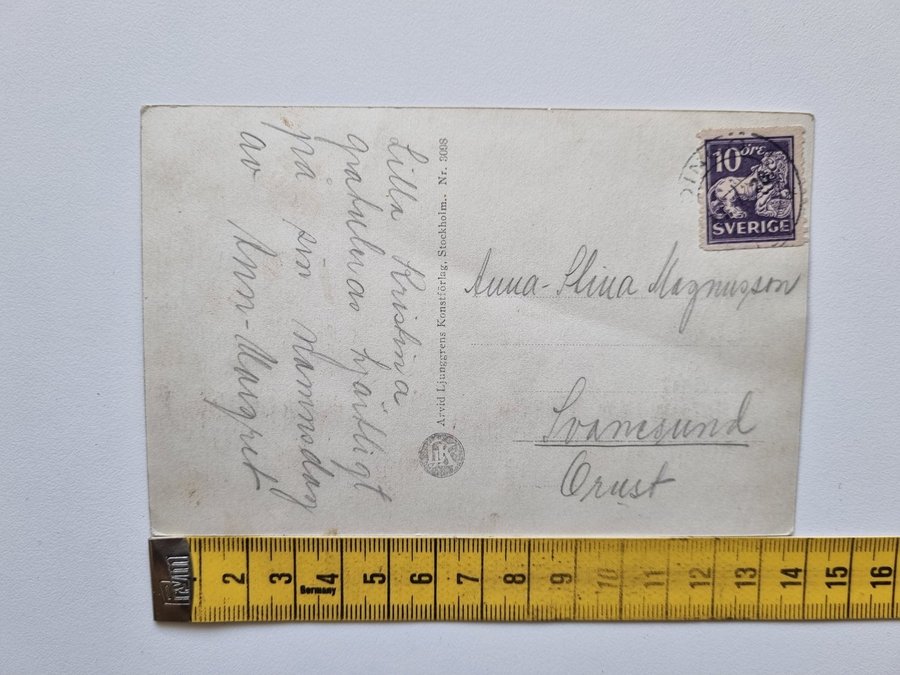 Lilla Kristina
gratuleras hjärtligt
på sin Namnsdag
av Ann-Margret
Arvid Ljunggrens Konstförlag, Stockholm. Nr. 3098
10 öre
SVERIGE
Anna-Stina Magnusson
Svanesund
Orust
2 3 4 5 6 7 8 9 10 11 12 13 14 15 16
Germany